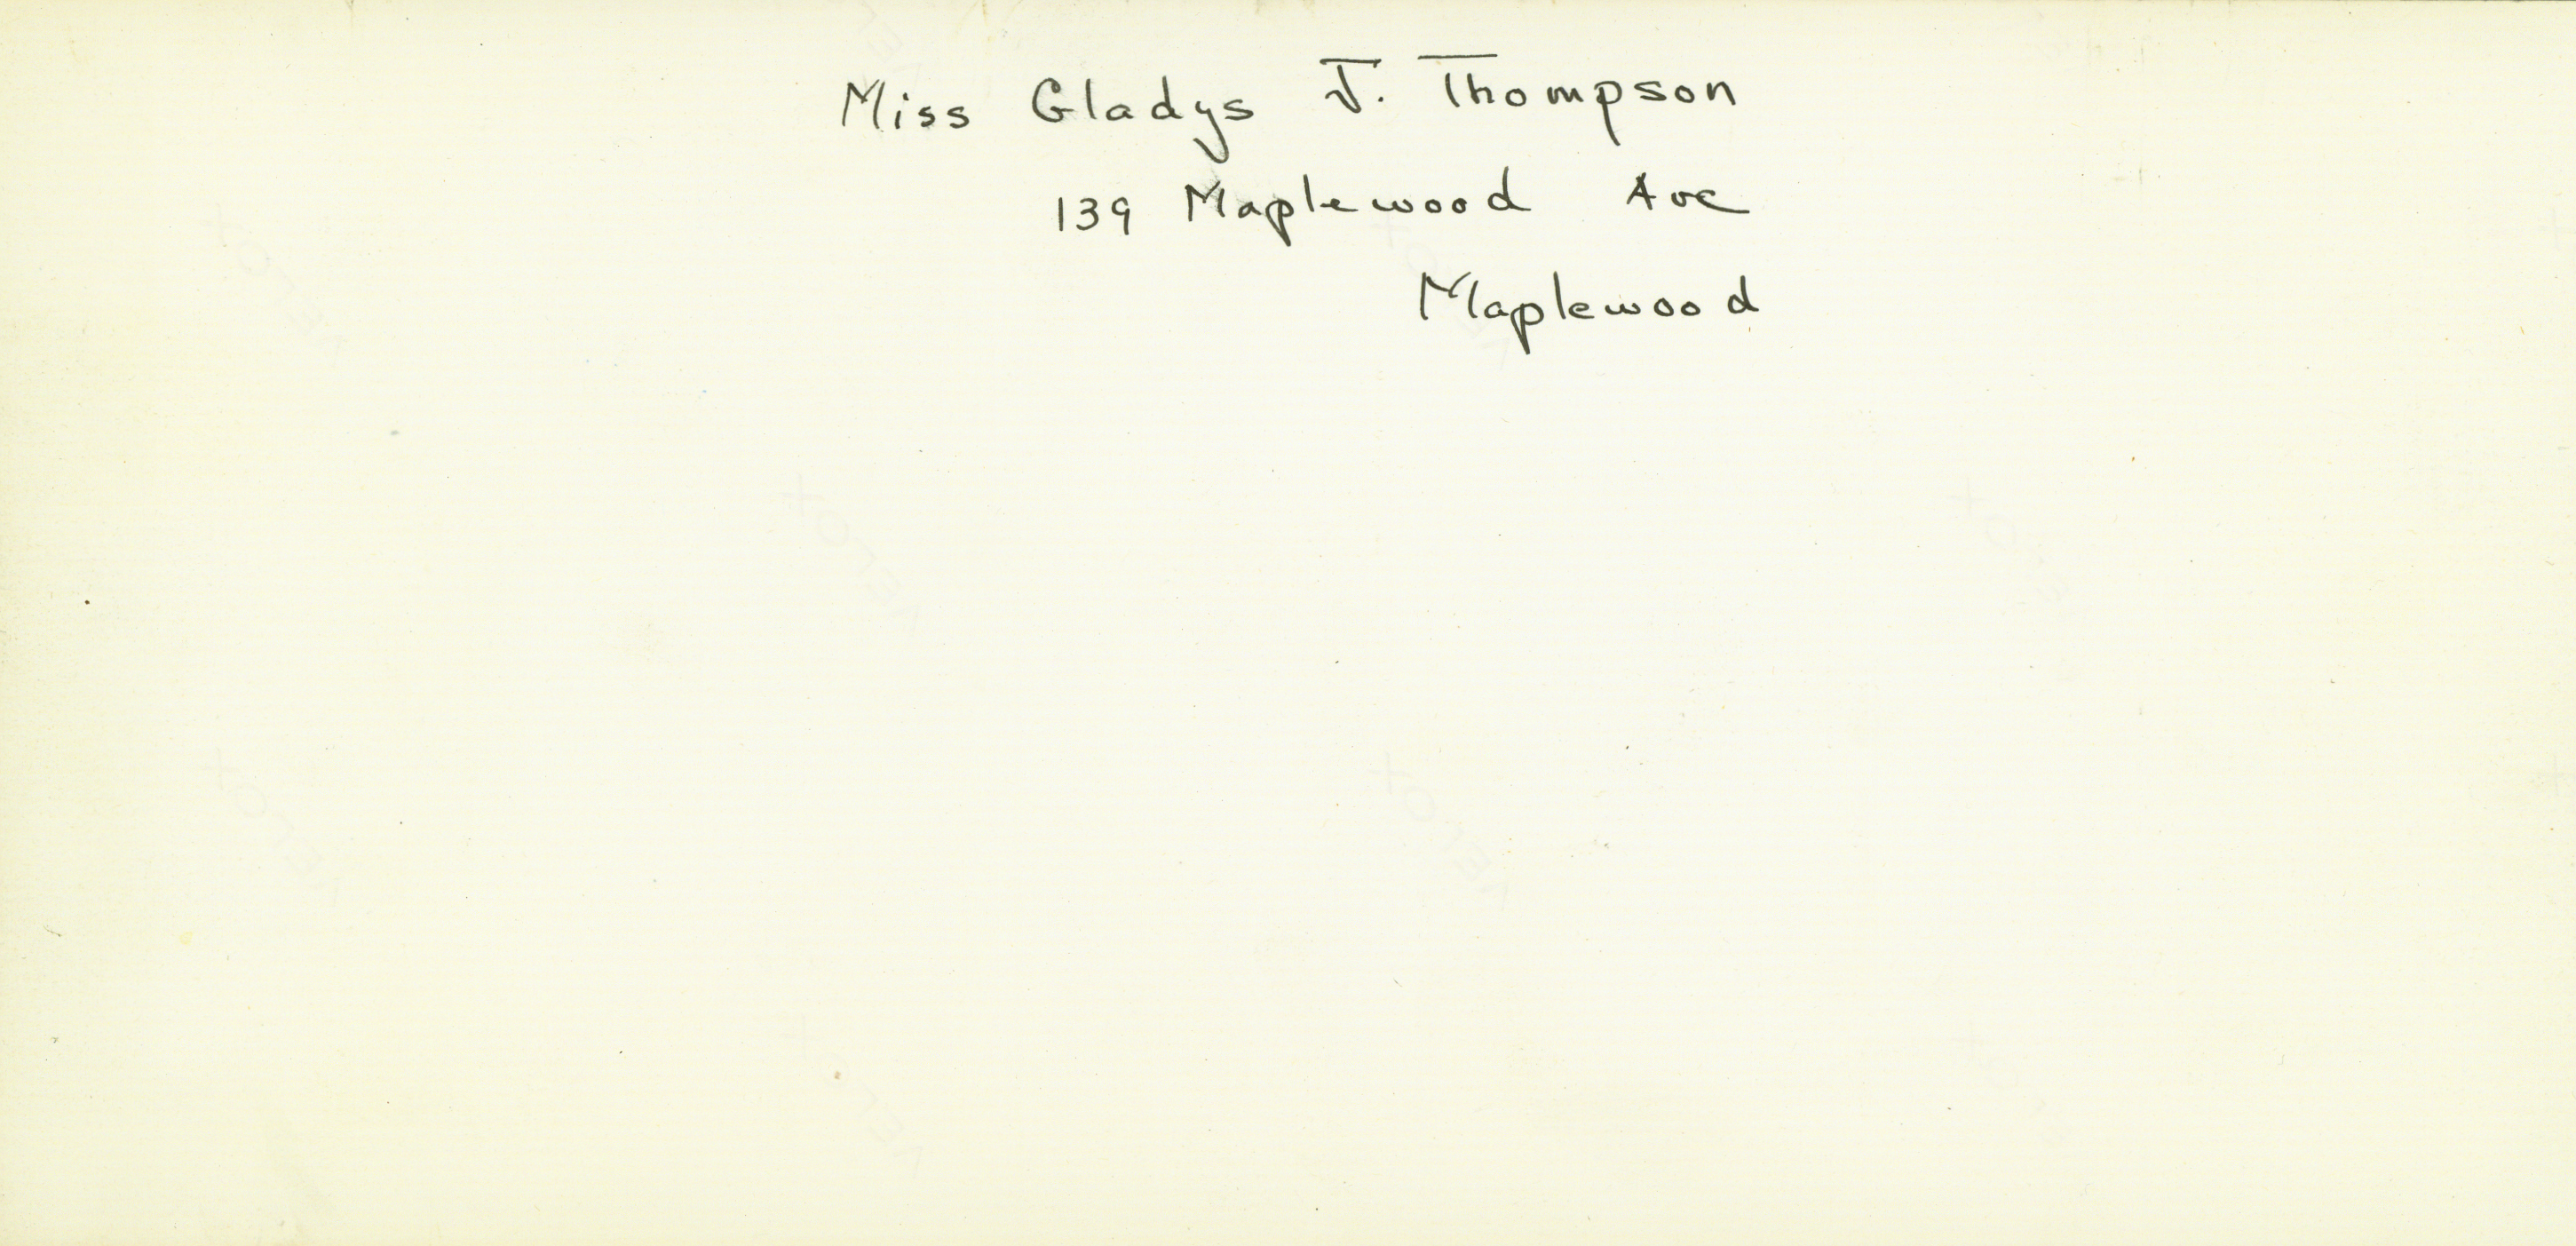 Miss Gladys J. Thompson
139 Maplewood Ave
Maplewood